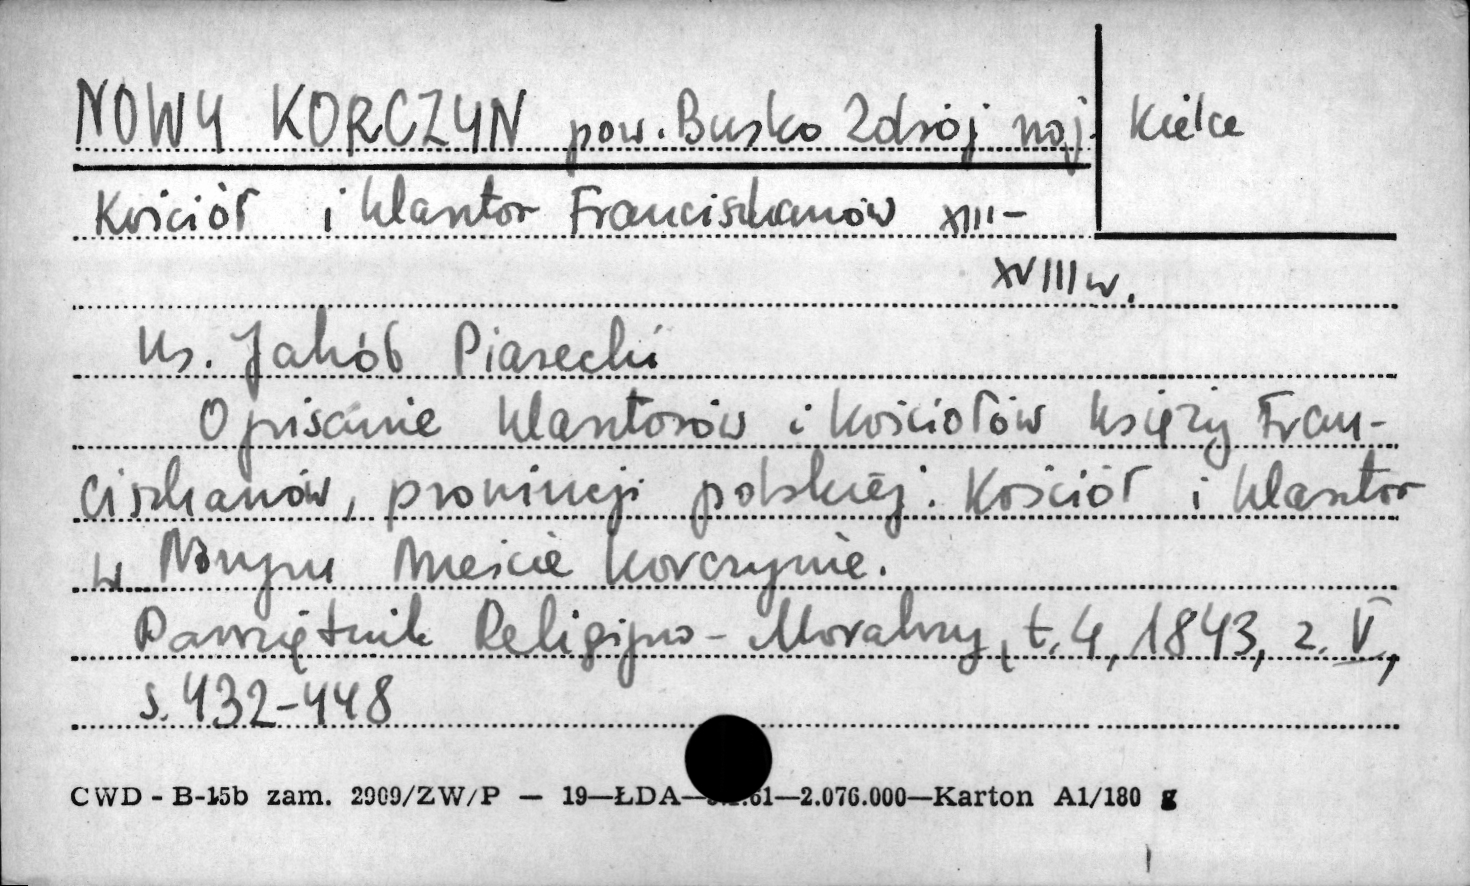 NOWY KORCZYN pow. Busko Zdrój woj. Kielce
Kościół i klasztor Franciszkanów XIII-
XVIII w.
Ks. Jakób Piasecki
Opisanie klasztorów i kościołów księży Fran-
ciszkanów, prowincji polskiej. Kościół i klasztor
w Nowym Mieście Korczynie.
Pamiętnik Religijno-Moralny, t. 4, 1843, z. V,
s. 432-448
CWD - B-15b zam. 2909/ZW/P — 19—ŁDA— 61—2.076.000—Karton A1/180 g